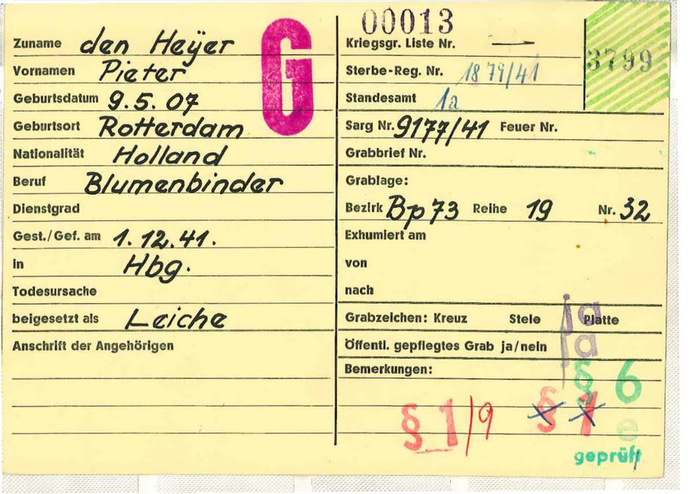 00013
Zuname den Heyer
Vornamen Pieter
Geburtsdatum 9.5.07
Geburtsort Rotterdam
Nationalität Holland
Beruf Blumenbinder
Dienstgrad
Gest./Gef. am 1.12.41.
in Hbg.
Todesursache
beigesetzt als Leiche
Anschrift der Angehörigen
G
Kriegsgr. Liste Nr. —
3799
Sterbe-Reg. Nr. 1879/41
Standesamt 1a
Sarg Nr. 9177/41 Feuer Nr.
Grabbrief Nr.
Grablage:
Bezirk Bp73 Reihe 19 Nr. 32
Exhumiert am
von
nach
Grabzeichen: Kreuz Stele Platte
ja
Öffentl. gepflegtes Grab ja/nein
ja
Bemerkungen:
§ 6
§ 1/9 § 1
e
geprüft